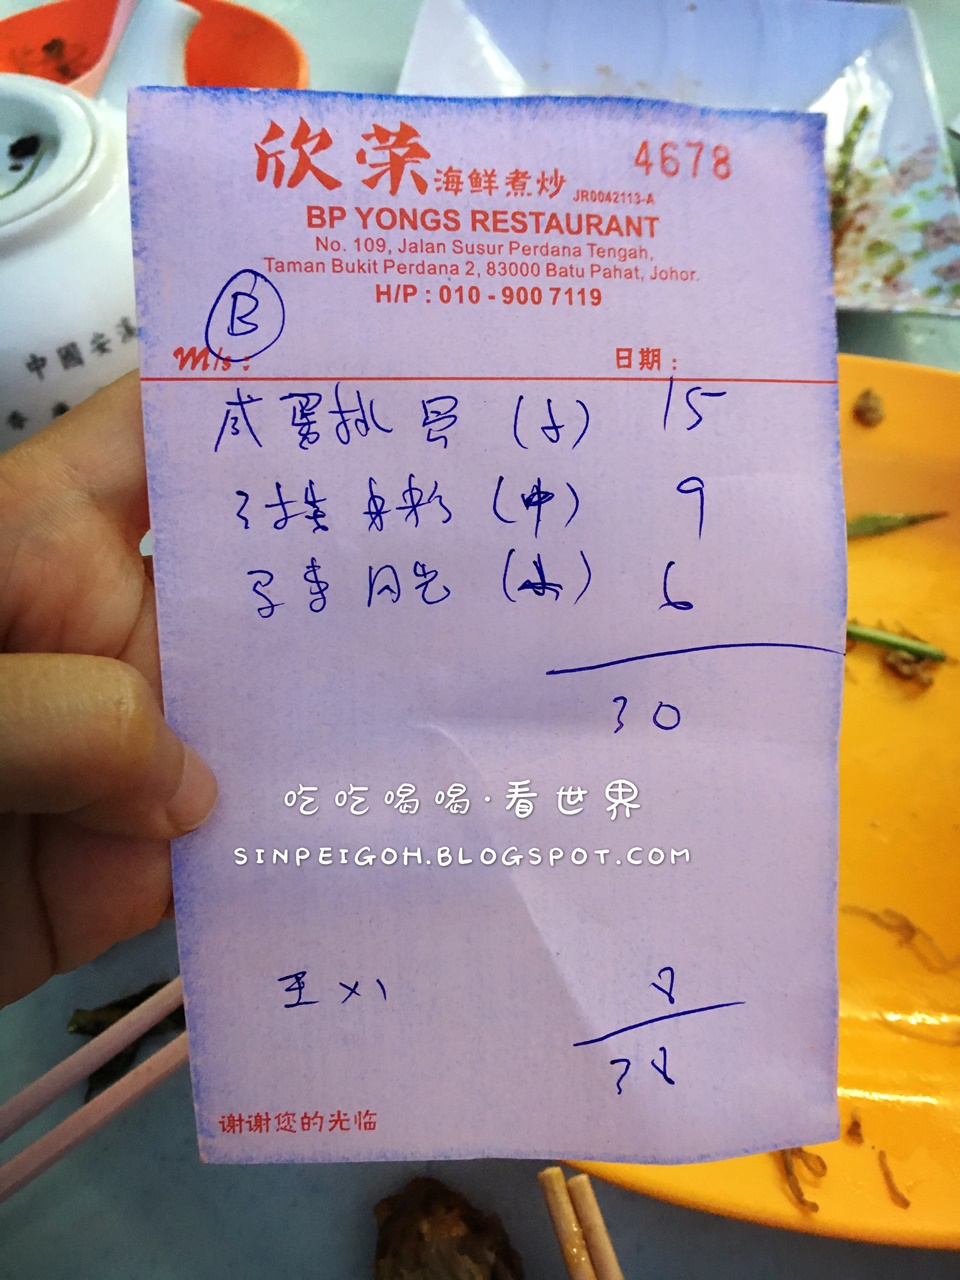 欣荣海鲜煮炒 JR0042113-A
4678
BP YONGS RESTAURANT
No. 109, Jalan Susur Perdana Tengah,
Taman Bukit Perdana 2, 83000 Batu Pahat, Johor.
H/P : 010 - 900 7119
B
M/s : 日期 :
15
(中) 9
月光 6
30
吃吃喝喝·看世界
SINPEIGOH.BLOGSPOT.COM
x1 8
38
谢谢您的光临
中國安溪